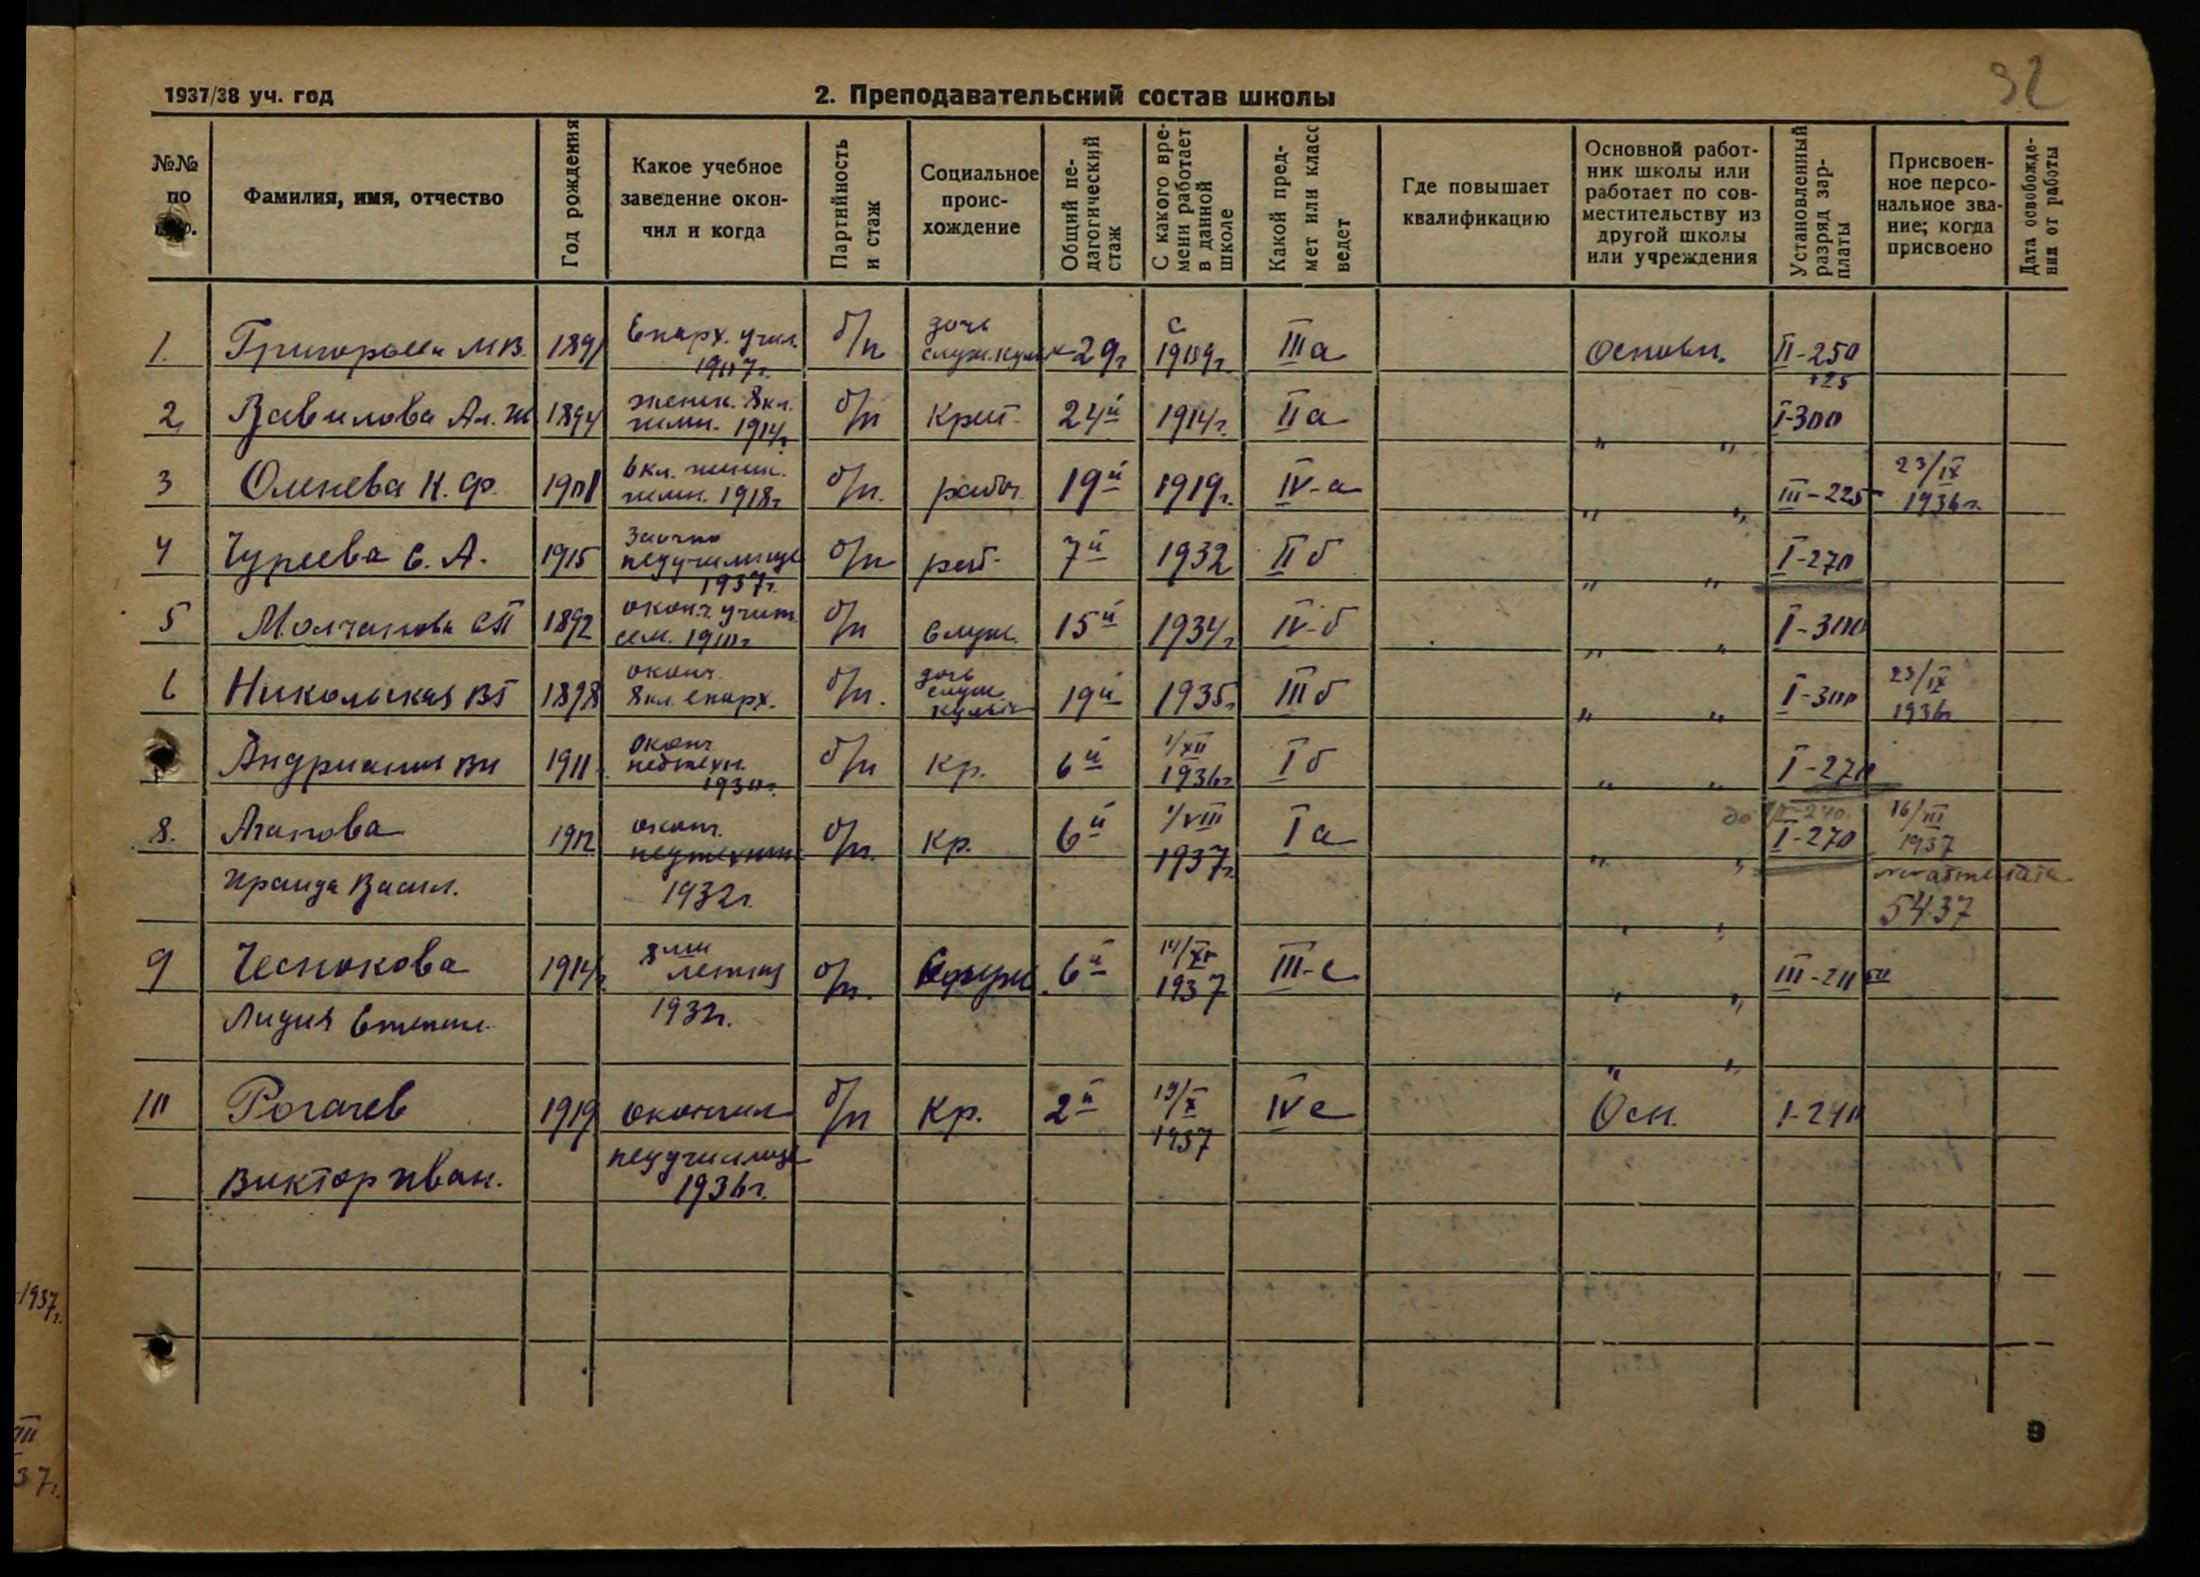 92
1937/38 уч. год
2. Преподавательский состав школы
№№ по
Фамилия, имя, отчество
Год рождения
Какое учебное заведение окончил и когда
Партийность и стаж
Социальное происхождение
Общий педагогический стаж
С какого времени работает в данной школе
Какой предмет или класс ведет
Где повышает квалификацию
Основной работник школы или работает по совместительству из другой школы или учреждения
Установленный разряд зарплаты
Присвоенное персональное звание; когда присвоено
Дата освобождения от работы
1. М.В. 1891 Епарх. учил. 1907г. б/п дочь служ. 29г с 1909г. IIIа Основн. II-250 +25
2, Вавилова Ал. 1894 женск. 8кл. гимн. 1914г. б/п крест. 24й 1914г. IIа " " I-300
3 Оленева К. Ф. 1901 женск. гимн. 1918г б/п. рабоч. 19й 1919г. IV-а " " III-225 23/IX 1936г.
4 С. А. 1915 Заочно педучилище 1937г. б/п раб. 7й 1932 IIб " " I-270
5 Молчанова 1892 оконч. учит. сем. 1910г б/п Служ. 15й 1934г IV-б " " I-300
6 Никольская 1898 оконч. 8кл. епарх. б/п. дочь служ. 19й 1935г IIIб " " I-300 23/IX 1936г
1911 Оконч. педтехн. 1930г. б/п Кр. 6й 1/XII 1936г Iб " " I-270
8. Агапова 1912 оконч. педтехник б/п. Кр. 6й 1/VIII 1937г. Iа " " до I-270 16/III 1937
Ираида Васил. 1932г. " " аттестата 5437
9 Чеснокова 1914г. 8ми летний б/п. 6й 14/XI 1937 III-с " "
Лидия Степан. 1932г. " "
10 Рогачев 1919 окончил б/п Кр. 2й 19/X 1937 IVс Осн. I-240
Виктор Иван. педучилище 1936г.
1937г.
VIII
37г.
9